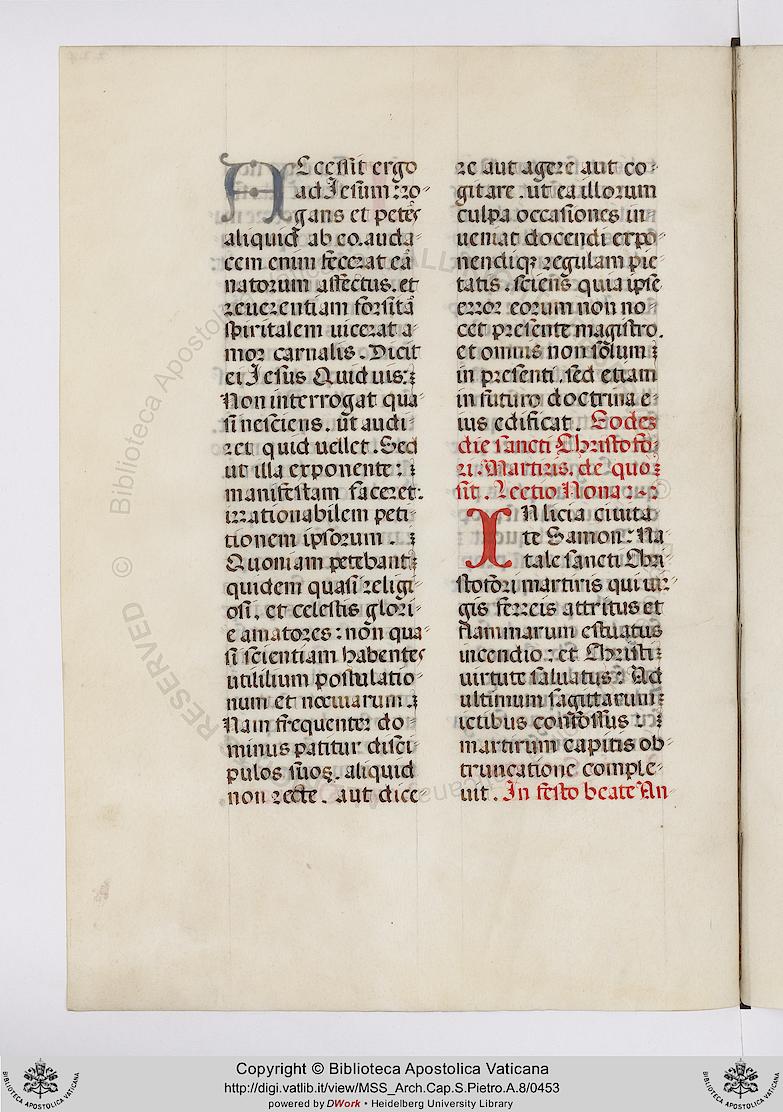 Accessit ergo
ad Jesum: ro-
gans et petēs
aliquid ab eo. auda-
cem enim fecerat eā
natorum affectus. et
reuerentiam forsitā
spiritalem uicerat a-
mor carnalis. Dicit
ei Jesus Quid uis:
Non interrogat qua-
si nesciens. ut audi-
ret quid uellet. Sed
ut illa exponente:
manifestam faceret:
irrationabilem peti-
tionem ipsorum.
Quoniam petebant
quidem quasi religi-
osi. et celestis glori-
e amatores: non qua-
si scientiam habentes
utililium postulatio-
num et nociuarum.
Nam frequenter do-
minus patitur disci-
pulos suos. aliquid
non recte. aut dice-
re aut agere aut co-
gitare. ut ea illorum
culpa occasiones in-
ueniat docendi expo-
nendiqꝫ regulam pie-
tatis. sciens quia ipse
error eorum non no-
cet presente magistro.
et omnis non solum
in presenti. sed etiam
in futuro doctrina e-
ius edificat. Eodez
die sancti Christofo-
ri. Martiris. de quo
fit. Lectio Nona:
IN licia ciuita-
te Samon: Na-
tale sancti Chri-
stofori martiris qui uir-
gis ferreis attritus et
flammarum estuatus
incendio: et Christi
uirtute saluatus: Ad
ultimum sagittarum
ictibus confossus:
martirum capitis ob-
truncatione comple-
uit. In festo beate An-
RESERVED © Biblioteca Apostolica
Copyright © Biblioteca Apostolica Vaticana
http://digi.vatlib.it/view/MSS_Arch.Cap.S.Pietro.A.8/0453
powered by DWork • Heidelberg University Library
BIBLIOTECA APOSTOLICA VATICANA
BIBLIOTECA APOSTOLICA VATICANA